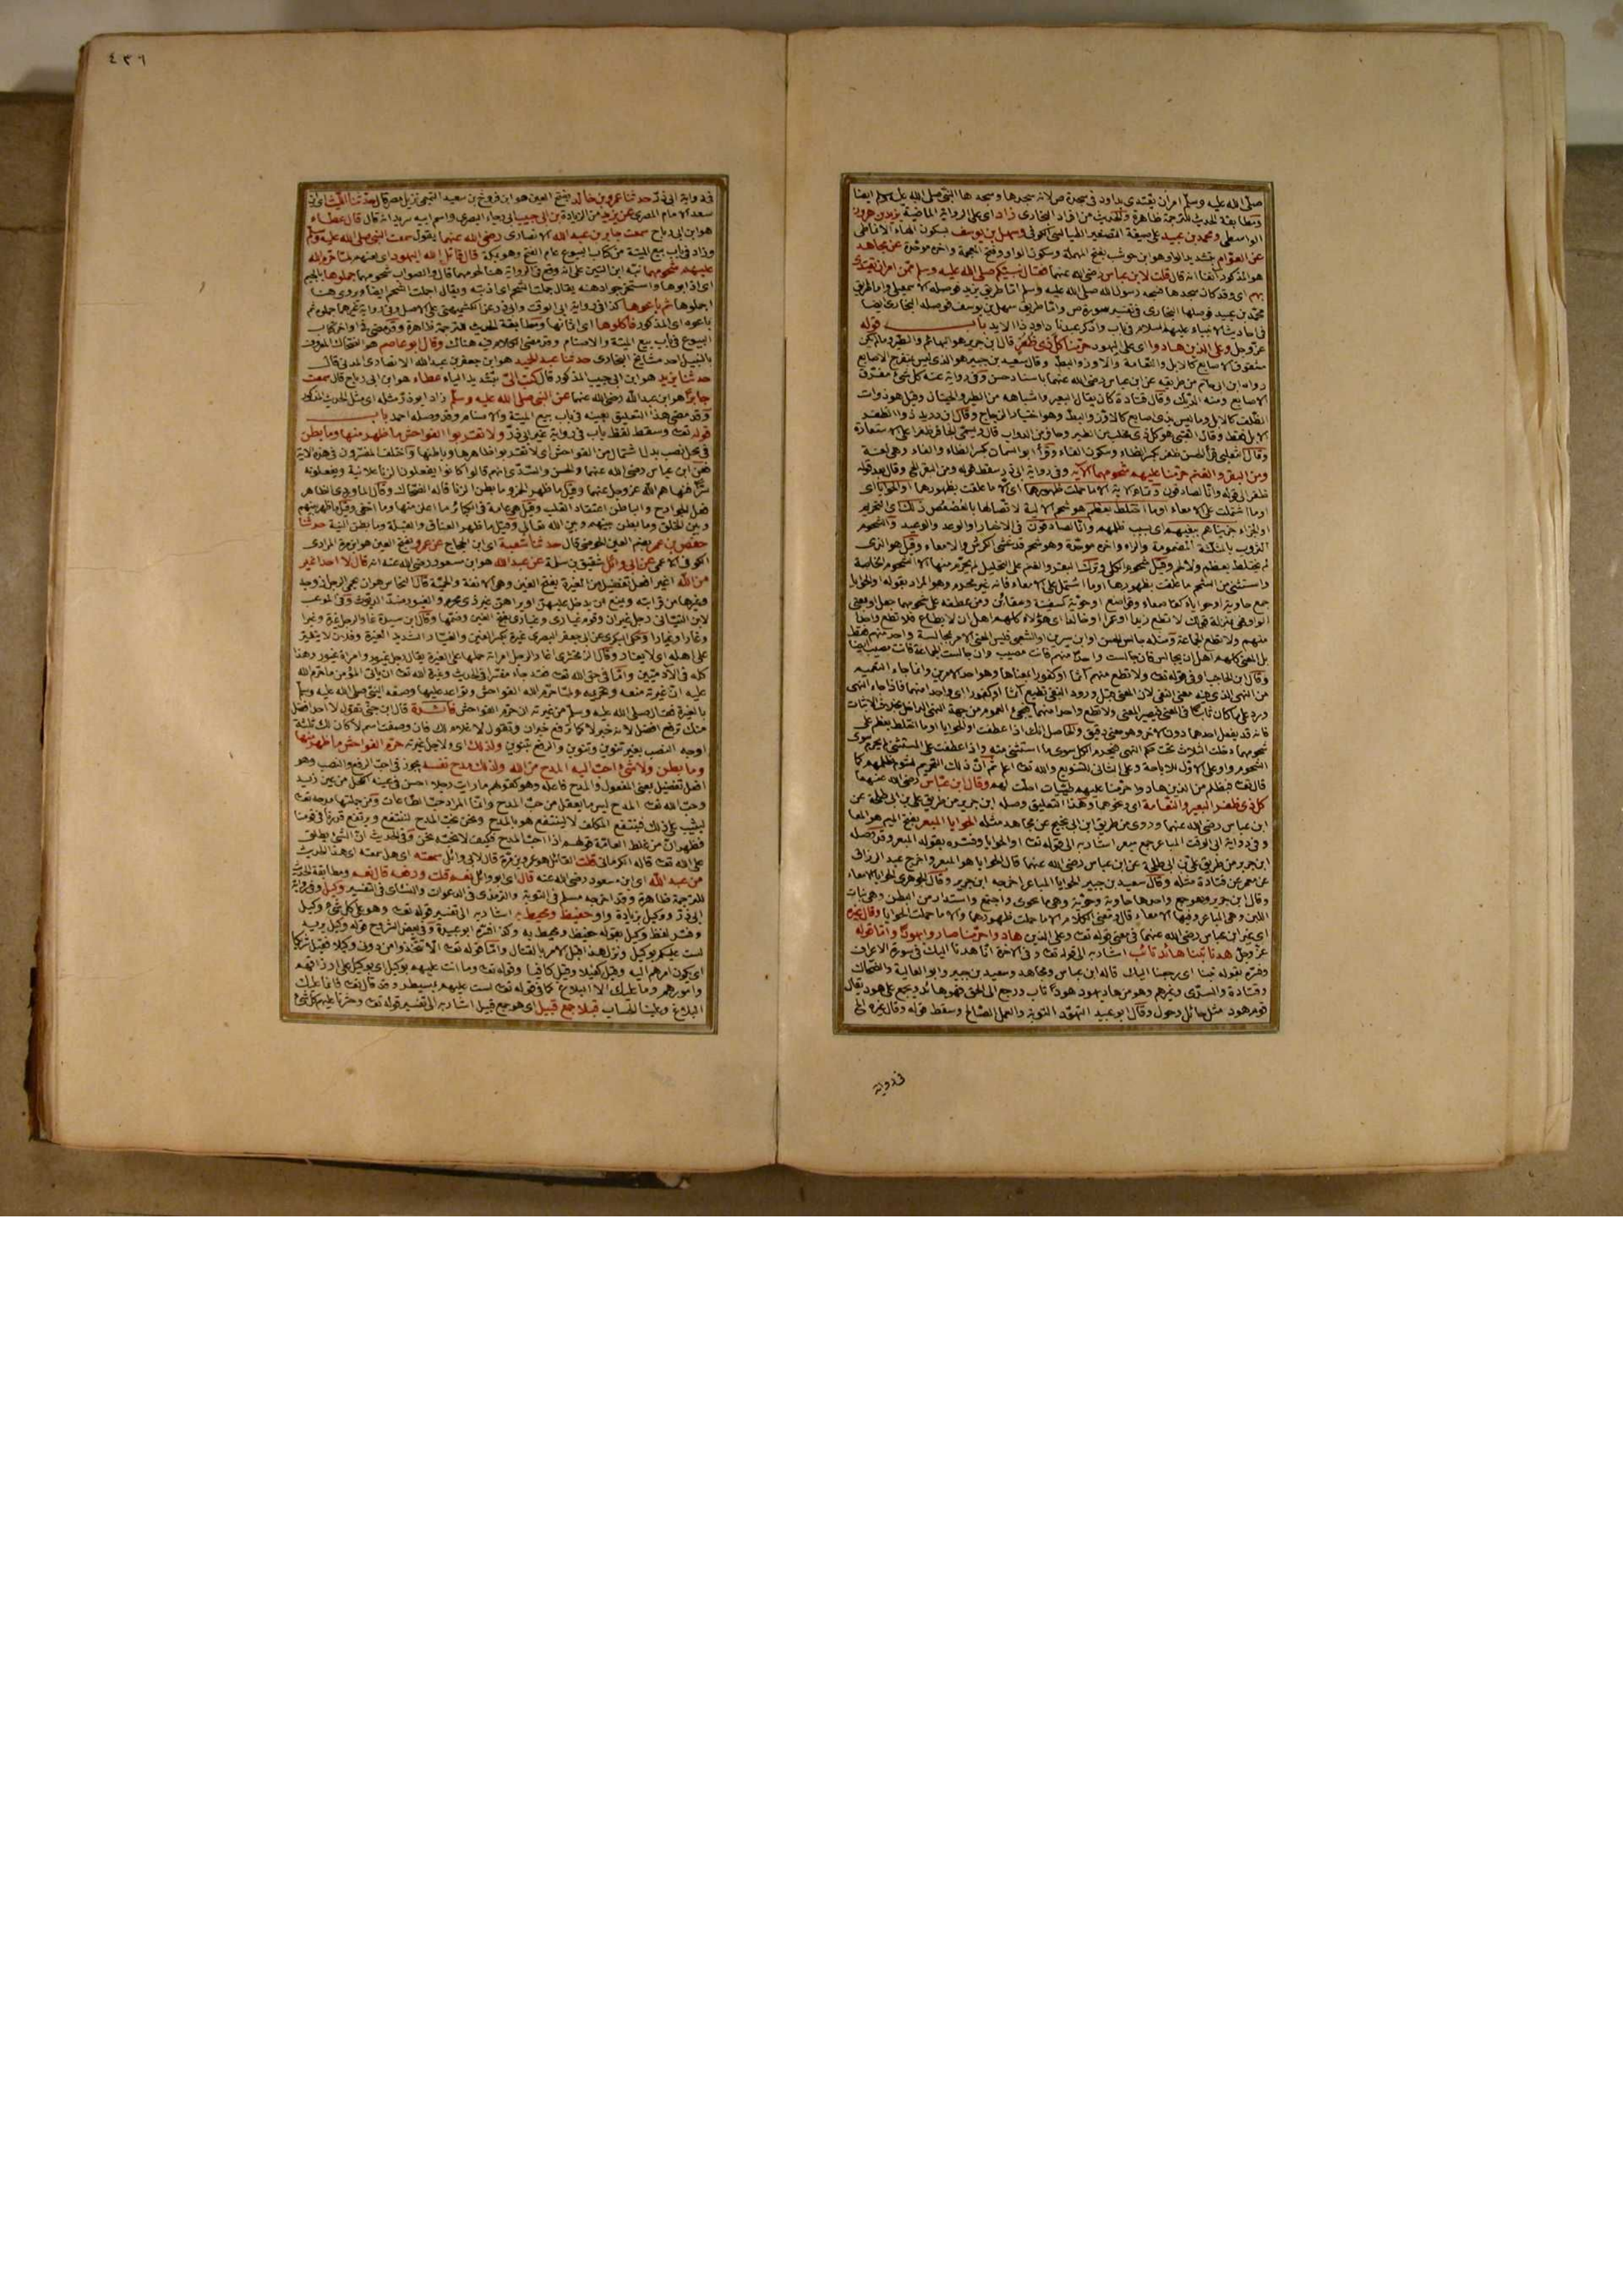 صلى الله عليه وسلم امر ان يقتدى بداود فى سجدة ص لانه سجدها وسجدها النبى صلى الله عليه وسلم ايضا
ومطابقة الحديث للترجمة ظاهرة والحديث من افراد البخارى زاد اى على الرواية الماضية يزيد بن هرون
الواسطى ومحمد بن عبيد على صيغة التصغير الطيالسى الكوفى وسهل بن يوسف بسكون الهاء الانماطى
عن العوام بتشديد الواو هو ابن حوشب بفتح المهملة وسكون الواو وفتح المعجمة واخره موحدة عن مجاهد
هو المذكور آنفا انه قال قلت لابن عباس رضى الله عنهما فقال نبيكم صلى الله عليه وسلم ممن امر ان يقتدى
بهم اى وقد كان سجدها فسجد رسول الله صلى الله عليه وسلم اما طريق يزيد فوصله الاسمعيلى واما طريق
محمد بن عبيد فوصلها البخارى فى تفسير سورة ص واما طريق سهل بن يوسف فوصله البخارى ايضا
فى احاديث الانبياء عليهم السلام فى باب واذكر عبدنا داود ذا الايد باب قوله
عز وجل وعلى الذين هادوا اى على اليهود حرمنا كل ذى ظفر قال ابن جرير هو البهائم والطير ما لم يكن
مشقوق الاصابع كالابل والنعامة والاوز والبط وقال سعيد بن جبير هو الذى ليس بمنفرج الاصابع
رواه ابن ابى حاتم من طريقه عن ابن عباس رضى الله عنهما باسناد حسن وفى رواية عنه كل شئ مفترق
الاصابع ومنه الديك وقال قتادة كان يقال البعير واشباهه من الطير والحيتان وقيل هو ذوات
الظلف كالابل وما ليس بذى اصابع كالاوز والبط وهو اختيار الزجاج وقال ابن دريد ذو الظفر
الابل فقط وقال القتبى هو كل ذى مخلب من الطير وحافر من الدواب قال ويسمى الحافر ظفرا على الاستعارة
وقال الثعلبى قرأ الحسن ظفر بكسر الظاء وسكون الفاء وقرأ ابو السمال بكسر الظاء والفاء وهى لغة
ومن البقر والغنم حرمنا عليهم شحومهما الآية وفى رواية ابى ذر سقط قوله ومن البقر الخ وقال بعد قوله
ظفر الى قوله وانا لصادقون وتمام الاية الا ما حملت ظهورهما اى الا ما علقت بظهورهما او الحوايا اى
او ما اشتملت على الامعاء او ما اختلط بعظم هو شحم الالية لاتصالها بالعصعص ذلك اى التحريم
او الجزاء جزيناهم ببغيهم اى بسبب ظلمهم وانا لصادقون فى الاخبار او الوعد والوعيد والشحوم
الثروب بالمثلثة المضمومة والراء واخره موحدة وهو شحم قد غشى الكرش والامعاء وقيل هو الذى
لم يختلط بعظم ولا لحم وقيل شحوم الكلى
واستثنى من الشحم ما علقت بظهورها او ما اشتمل على الامعاء فانه غير محرم وهو المراد بقوله او الحوايا
جمع حاوية او حاوياء كقاصعاء وقواصع او حوية كسفينة وسفائن ومن عطفه على شحومهما جعل او بمعنى
الواو فهى بمنزلة قولك لا تطع زيدا او عمرا او خالدا اى هؤلاء كلهم اهل ان لا يطاع فلا تطع واحدا
منهم ولا تطع الجماعة ومثله جالس الحسن او ابن سيرين او الشعبى فليس المعنى الامر بمجالسة واحد منهم فقط
بل المعنى كلهم اهل ان يجالس فان جالست واحدا منهم فانت مصيب وان جالست الجماعة فانت مصيب ايضا
وقال ابن الحاجب او فى قوله تعالى ولا تطع منهم آثما او كفورا بمعناها وهو احد الامرين وانما جاء التعميم
من النهى الذى فيه معنى النفى لان المعنى قبل ورود النفى تطيع آثما او كفورا اى واحدا منهما فاذا جاء النهى
ورد على ما كان ثابتا فى المعنى فيصير المعنى ولا تطع واحدا منهما فيجئ العموم من جهة النهى الداخل بخلاف الاثبات
فانه قد يفعل احدهما دون الآخر وهو معنى دقيق والحاصل انك اذا عطفت او الحوايا او ما اختلط بعظم على
شحومهما دخلت الثلاث تحت حكم النهى فيحرم الكل سوى ما استثنى منه واذا عطفت على المستثنى لم يحرم سوى
الشحوم واو على الاول للاباحة وعلى الثانى للتنويع والله تعالى اعلم ثم ان ذلك التحريم لشوم ظلمهم كما
قال تعالى فبظلم من الذين هادوا حرمنا عليهم طيبات احلت لهم وقال ابن عباس رضى الله عنهما
كل ذى ظفر البعير والنعامة اى ونحوهما وهذا التعليق وصله ابن جرير من طريق على بن ابى طلحة عن
ابن عباس رضى الله عنهما وروى من طريق ابن ابى نجيح عن مجاهد مثله الحوايا المبعر بفتح الميم هو المعا
وفى رواية ابى الوقت المباعر جمع مبعر اشار به الى قوله تعالى او الحوايا وفسره بقوله المبعر وقد وصله
ابن جرير من طريق على بن ابى طلحة عن ابن عباس رضى الله عنهما قال الحوايا هو المبعر واخرج عبد الرزاق
عن معمر عن قتادة مثله وقال سعيد بن جبير الحوايا المباعر اخرجه ابن جرير وقال الجوهرى الحوايا الامعاء
وقال ابن جرير وهو جمع واحدها حاوية وحوية وهى ما تحوى واجتمع واستدار من البطن وهى بنات
اللبن وهى المباعر وفيها الامعاء قال ومعنى الكلام الا ما حملت ظهورهما والا ما حملت الحوايا وقال غيره
اى غير ابن عباس رضى الله عنهما فى معنى قوله تعالى وعلى الذين هادوا حرمنا صاروا يهودا واما قوله
عز وجل هدنا تبنا هائد تائب اشار به الى قوله تعالى وفى الآخرة انا هدنا اليك فى سورة الاعراف
وفسره بقوله تبنا اى رجعنا اليك قاله ابن عباس ومجاهد وسعيد بن جبير وابو العالية والضحاك
وقتادة والسدى وغيرهم وهو من هاد يهود هودا تاب ورجع الى الحق فهو هائد ويجمع على هود يقال
قوم هود مثل حائل وحول وقال ابو عبيد التهود التوبة والعمل الصالح وسقط قوله وقال غيره الخ
فى رواية
٤٣٦
فى رواية ابى ذر حدثنا عمرو بن خالد بفتح العين هو ابن فروخ بن سعيد التميمى نزيل مصر قال حدثنا الليث اى ابن
سعد الامام المصرى عن يزيد من الزيادة بن ابى حبيب ابى رجاء المصرى واسم ابيه سويد انه قال قال عطاء
هو ابن ابى رباح سمعت جابر بن عبد الله الانصارى رضى الله عنهما يقول سمعت النبى صلى الله عليه وسلم
وزاد فى باب بيع الميتة من كتاب البيوع عام الفتح وهو بمكة قال قاتل الله اليهود اى لعنهم لما حرم الله
عليهم شحومهما نبه ابن التين على انه وقع فى الرواية هنا لحومهما قال والصواب شحومهما جملوها بالجيم
اى اذابوها واستخرجوا دهنه يقال جملت الشحم اى اذبته ويقال اجملت الشحم ايضا ويروى هنا
اجملوها ثم باعوها كذا فى رواية ابى الوقت وابى ذر عن الكشميهنى على الاصل وفى رواية غيرهما جملوه ثم
باعوه اى المذكور فاكلوها اى اثمانها ومطابقة الحديث للترجمة ظاهرة وقد مضى فى اواخر كتاب
البيوع فى باب بيع الميتة والاصنام ومر معنى الكلام فيه هناك وقال ابو عاصم هو الضحاك المعروف
بالنبيل احد مشايخ البخارى حدثنا عبد الحميد هو ابن جعفر بن عبد الله الانصارى المدنى قال
حدثنا يزيد هو ابن ابى حبيب المذكور قال كتب الى بتشديد الياء عطاء هو ابن ابى رباح قال سمعت
جابرا هو ابن عبد الله رضى الله عنهما عن النبى صلى الله عليه وسلم زاد ابو ذر مثله اى مثل الحديث المذكور
وقد مضى هذا التعليق بعينه فى باب بيع الميتة والاصنام وقد وصله احمد باب
قوله تعالى وسقط لفظ باب فى رواية غير ابى ذر ولا تقربوا الفواحش ما ظهر منها وما بطن
فى محل نصب بدل اشتمال من الفواحش اى لا تقربوا ظاهرها وباطنها واختلف المفسرون فى هذه الآية
فعن ابن عباس رضى الله عنهما والحسن والسدى انهم قالوا كانوا يفعلون الزنا علانية ويفعلونه
سرا فنهاهم الله عز وجل عنهما وقيل ما ظهر الخمر وما بطن الزنا قاله الضحاك وقال الماوردى الظاهر
فعل الجوارح والباطن اعتقاد القلب وقيل هى عامة فى الكبائر ما اعلن منها وما اخفى وقيل ما ظهر بينهم
وبين الخلق وما بطن بينهم وبين الله تعالى وقيل ما ظهر العناق والقبلة وما بطن النية حدثنا
حفص بن عمر بضم العين الحوضى قال حدثنا شعبة اى ابن الحجاج عن عمرو بفتح العين هو ابن مرة المرادى
الكوفى الاعمى عن ابى وائل شقيق بن سلمة عن عبد الله هو ابن مسعود رضى الله عنه انه قال لا احد اغير
من الله اغير افعل تفضيل من الغيرة بفتح الغين وهى الانفة والحمية قال النحاس هو ان يحمى الرجل زوجه
وغيرها من قرابته ويمنع ان يدخل عليهن او يراهن غير ذى محرم والغيور ضد الديوث وفى الموعب
لابن التيانى رجل غيران وقوم غيارى وغيارى بفتح الغين وضمها وقال ابن سيدة غار الرجل غيرة وغيرا
وغارا وغيارا وحكى البكرى عن ابى جعفر البصرى غيرة بكسر الغين والمغيار الشديد الغيرة وفلان لا يتغير
على اهله اى لا يغار وقال الزمخشرى اغار الرجل امرأته حملها على الغيرة يقال رجل غيور وامرأة غيور وهذا
كله فى الآدميين واما فى حق الله تعالى فقد جاء مفسرا فى الحديث وغيرة الله تعالى ان يأتى المؤمن ما حرم الله
عليه اى غيرته منعه وتحريمه ولما حرم الله الفواحش وتواعد عليها وصفه النبى صلى الله عليه وسلم
بالغيرة فقال صلى الله عليه وسلم من غيرته ان حرم الفواحش فائدة قال ابن جنى تقول لا احد افضل
منك برفع افضل لانه خبر لا كما ترفع خبر ان وتقول لا غلام لك فان وصفت اسم لا كان لك ثلاثة
اوجه النصب بغير تنوين وبتنوين والرفع بتنوين ولذلك اى ولاجل غيرته حرم الفواحش ما ظهر منها
وما بطن ولا شئ احب اليه المدح من الله ولذلك مدح نفسه يجوز فى احب الرفع والنصب وهو
افعل تفضيل بمعنى المفعول والمدح فاعله وهو كقولهم ما رأيت رجلا احسن فى عينه الكحل من عين زيد
وحب الله تعالى المدح ليس مما يعقل من حب المدح وانما المراد حب الطاعات ومن جملتها مدحه تعالى
ليثيب على ذلك فينتفع المكلف لا لينتفع هو بالمدح ونحن نحب المدح لننتفع ويرتفع قدرنا فى قومنا
فظهر ان من غلط العامة قولهم اذا احب المدح فكيف لا نحبه نحن وفى الحديث ان الشئ يطلق
على الله تعالى قاله الكرمانى قلت القائل هو عمرو بن مرة قال لابى وائل سمعته اى هل سمعته اى هذا الحديث
من عبد الله اى ابن مسعود رضى الله عنه قال اى ابو وائل نعم قلت ورفعه قال نعم ومطابقة الحديث
للترجمة ظاهرة وقد اخرجه مسلم فى التوبة والترمذى فى الدعوات والنسائى فى التفسير وكيل وفى رواية
ابى ذر ووكيل بزيادة واو حفيظ ومحيط به اشار به الى تفسير قوله تعالى وهو على كل شئ وكيل
وفسر لفظ وكيل بقوله حفيظ ومحيط به وكذا فسره ابو عبيدة وفى بعض الشروح قوله وكيل يريد
لست عليكم بوكيل ونزل هذا قبل الامر بالقتال واما قوله تعالى الا تتخذوا من دونى وكيلا فقيل شريكا
اى يكون امرهم اليه وقيل كفيلا وقيل كافيا وقوله تعالى وما انت عليهم بوكيل اى بوكيل على ارزاقهم
وامورهم وما عليك الا البلاغ كما فى قوله تعالى لست عليهم بمسيطر وقد قال تعالى فانما عليك
البلاغ وعلينا الحساب قبلا جمع قبيل اى هو جمع قبيل اشار به الى تفسير قوله تعالى وحشرنا عليهم كل شئ